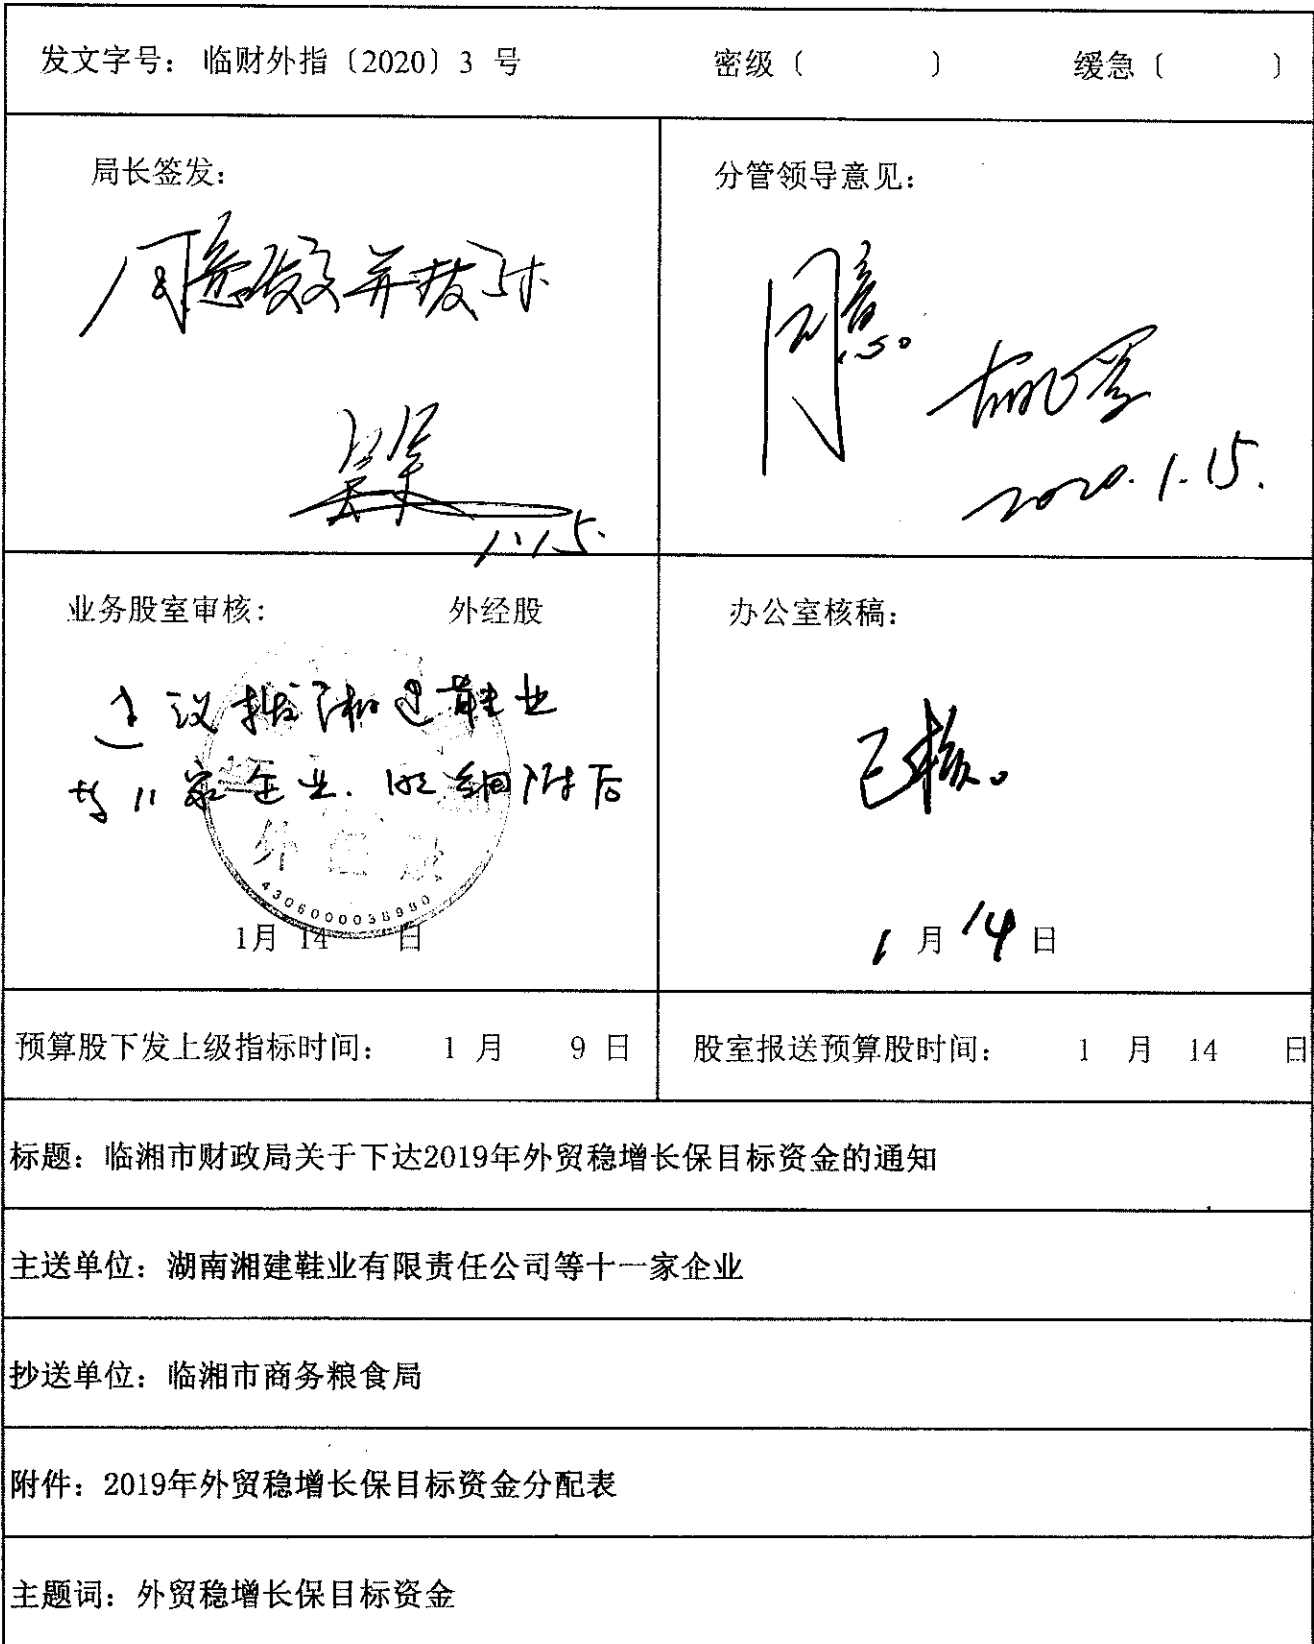 发文字号： 临财外指〔2020〕3 号 密级（ ） 缓急（ ）
局长签发：
同意发文并拨付
1.15.
分管领导意见：
同意。
2020.1.15.
业务股室审核： 外经股
建议拨湘建鞋业
等11家企业. 明细附后
外经股
1月 14 日
办公室核稿：
已核。
1 月 14 日
预算股下发上级指标时间： 1 月 9 日
股室报送预算股时间： 1 月 14 日
标题：临湘市财政局关于下达2019年外贸稳增长保目标资金的通知
主送单位：湖南湘建鞋业有限责任公司等十一家企业
抄送单位：临湘市商务粮食局
附件：2019年外贸稳增长保目标资金分配表
主题词：外贸稳增长保目标资金